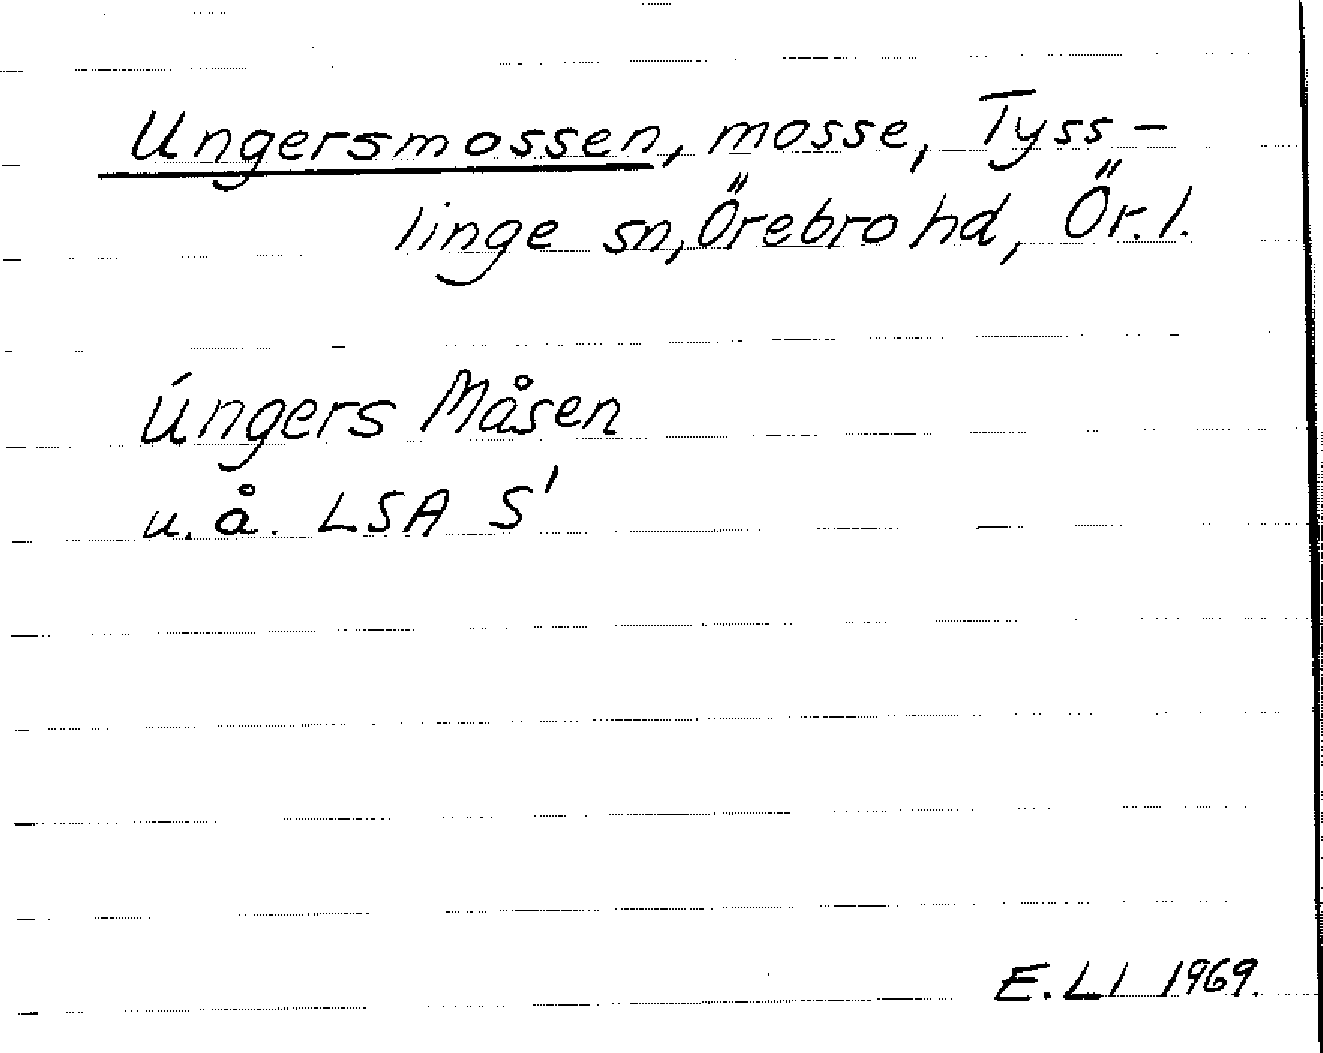 Ungersmossen, mosse, Tyss-
linge sn, Örebro hd, Ör. l.
Úngers Måsen
u. å. LSA S'
E. Ll 1969.